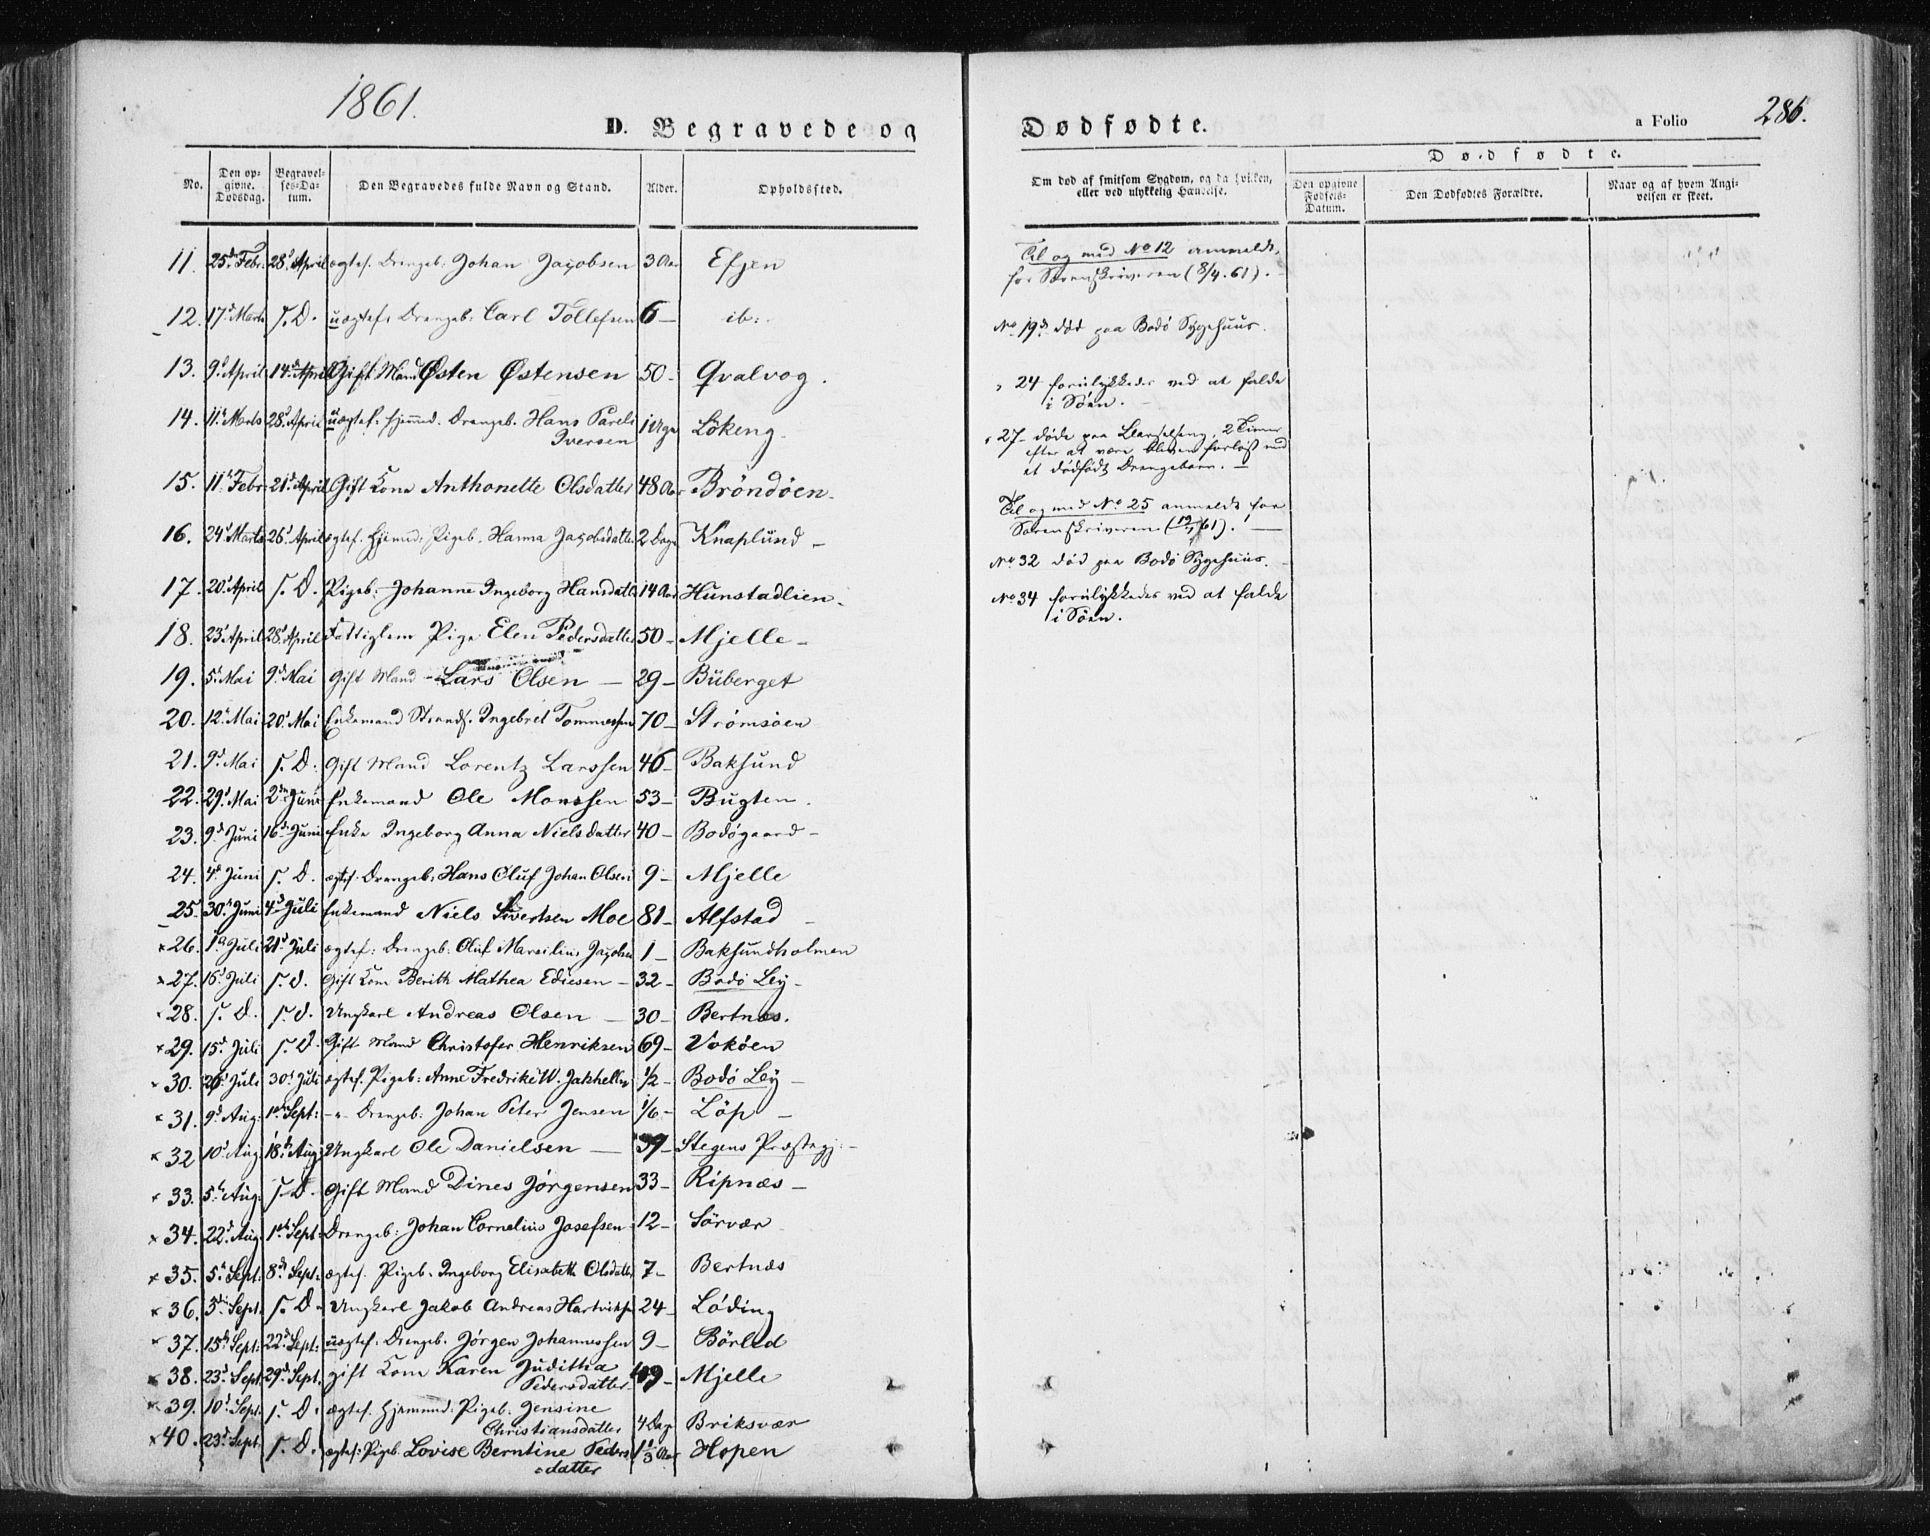 1861.
D. Begravede og
No.
Den opgivne. Dødsdag.
Begravelses-Datum.
Den Begravedes fulde Navn og Stand.
Alder.
Opholdssted.
11. 25d Febr. 28d April ægtef. Drengeb. Johan Jacobsen 3 Aar Efjen
12. 17d Marts s. D. uægtef. Drengeb. Carl Tollefsen 6 – ib.
13. 9d April 14d April Gift Mand Østen Østensen 50 – Qvalvog.
14. 11d Marts 28d April uægtef. hjemmed. Drengeb. Hans Pareli
Iversen 1 Uge Lökeng.
15. 11d Febr. 21d April Gift Kone Anthonette Olsdatter 48 Aar Bröndöen.
16. 24d Marts 26d April ægtef. Hjemed. Pigeb. Hanna Jacobsdatter 2 Dage Knaplund –
17. 20d April s. D. Pigeb. Johanne Ingeborg Hansdatter 14 Aar Hunstadlien.
18. 23d April 28d April Fattiglem Pige Elen Pedersdatter 50 – Mjelle –
19. 5d Mai 9d Mai Gift Mand Lars Olsen – 29 – Buberget
20. 12d Mai 20d Mai Enkemand Strands. Ingebret Tommessen 70 – Strømsöen
21. 9d Mai s. D. Gift Mand Lorentz Larssen 46 – Baksund
22. 29d Mai 2den Juni Enkemand Ole Monssen 53 – Bugten.
23. 9d Juni 16d Juni Enke Ingeborg Anna Nielsdatter 40 – Bodögaard –
24. 4d Juni s. D. ægtef. Drengeb. Hans Oluf Johan Olsen 9 – Mjelle
25. 30d Juni 4d Juli Enkemand Niels Sivertsen Moe 81 – Alfstad –
× 26. 1d Juli 21d Juli ægtef. Drengeb. Oluf Marsilius Jacobsen 1 – Baksundholmen
× 27. 16d Juli s. d. Gift Kone Berith Mathea Ediesen – 32 – Bodö Ley –
× 28. s. D. s. d. Ungkarl Andreas Olsen – 30 – Bertnæs.
× 29. 15d Juli s. D. Gift Mand Christofer Henriksen 69 – Vokøen
× 30. 26d Juli 30d Juli ægtef. Pigeb. Anne Fredrike W. Jakhelln 1/2 – Bodö Ley –
× 31. 9d Aug. 1ste Sept. – " – Drengeb. Johan Peter Jensen 1/6 – Löp –
× 32 10d Aug. 18d Aug. Ungkarl Ole Danielsen – 39 – Stegens Præstegj. –
× 33. 5d Aug. s. D. Gift Mand Dines Jørgensen 33 – Ripnæs –
× 34. 22d Aug. 1ste Sept. Drengeb. Johan Cornelius Josefsen 12 – Sörvær
× 35. 5d Sept. 8d Sept. ægtef. Pigeb. Ingeborg Elisabeth Olsdatter 7 – Bertnæs
× 36. 3d Sept. s. D. Ungkarl Jakob Andreas Hartviksen 24 – Löding
× 37. 15d Sept. 22d Sept. uægtef. Drengeb. Jørgen Johannessen 9 – Börlid
× 38. 23d Sept. 29d Sept. gift Kone Karen Juditha
Pedersdatter 49 – Mjelle
× 39. 10d Sept. s. D. ægtef. Hjemmed. Pigeb. Jensine
Christiansdatter 4 Dag Briksvær
× 40. 23d Sept. s. D. ægtef. Pigeb. Lovise Berntine Peders
datter 1 1/3 Aar Hopen
Dødfødte.
a Folio 286.
Om død af smitsom Sygdom, og da hvilken,
eller ved ulykkelig Hændelse.
Dødfødte.
Den opgivne Fødsels-Datum.
Den Dødfødtes Forældre.
Naar og af hvem Angivelsen er skeet.
Til og med No 12 anmeldt
for Sorenskriveren (8/4. 61).
No 19 död paa Bodö Sygehuus.
" 24 forulykkedes ved at falde
i Søen. –
" 27 døde paa Barselseng, 2 Timer
efter at være bleven forløst med
et dødfödt Drengebarn. –
Til og med No 25 anmeldt for
Sorenskriveren (/61). –
No 32 død paa Bodö Sygehuus.
No 34 forulykkedes ved at falde
i Søen.